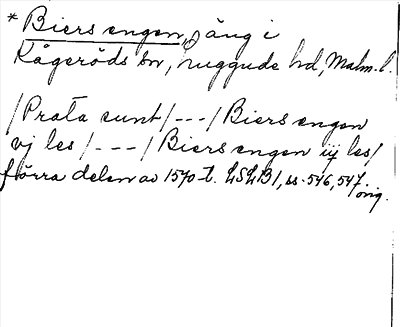 * Biers engen, äng i
Kågeröds sn, Luggude hd, Malm. l.
/Prata sunt/---/Biers engen
vj les/---/Biers engen iij les/
förra delen av 1570-t. LSLB1, ss. 546, 547
orig.